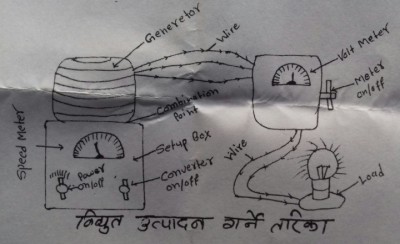 Generetor
Wire
Volt Meter
Meter
on/off
Combination
Point
Speed Meter
Setup Box
Power
on/off
Converter
on/off
Wire
Load
विद्युत उत्पादन गर्ने तरिका